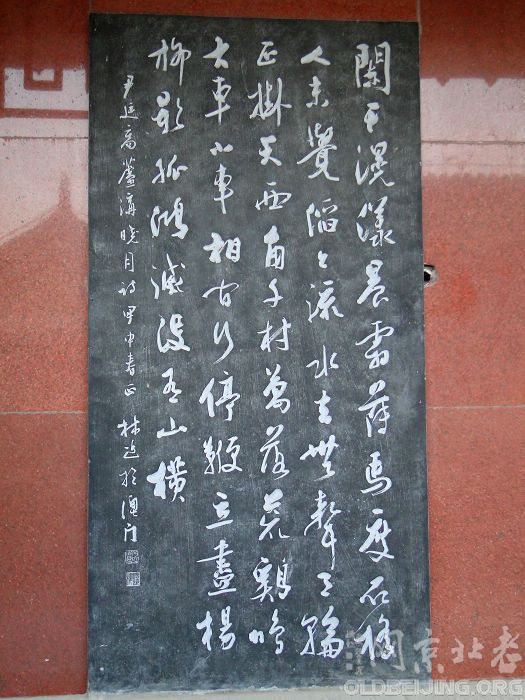 闌干滉漾晨霜薄馬度石橋
人未覺滔々流水去無聲月輪
正掛天西角千村萬落荒鷄鳴
大車小車相間行停鞭立盡楊
柳影孤鴻滅没青山橫
尹廷高蘆溝曉月詩甲申春正林近於澳門
网京北老
OLDBEIJING.ORG